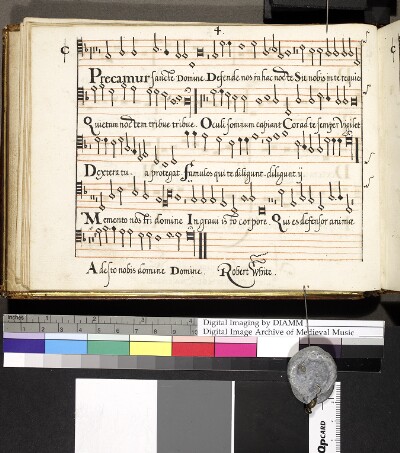 4.
Precamur sancte Domine Defende nos in hac nocte Sit nobis in te requie
Quietam noctem tribue tribue. Oculi somnum capiant Cor ad te semper vigilet
Dextera tu. a protegat famulos qui te diligunt. diligunt ij
Memento nostri domine In gravi isto corpore. Qui es defensor animæ
Adesto nobis domine Domine. Robert White.
inches
Digital Imaging by DIAMM
Digital Image Archive of Medieval Music
QPCARD